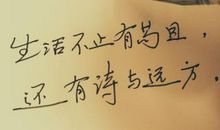 生活不止有苟且，
还有诗与远方，